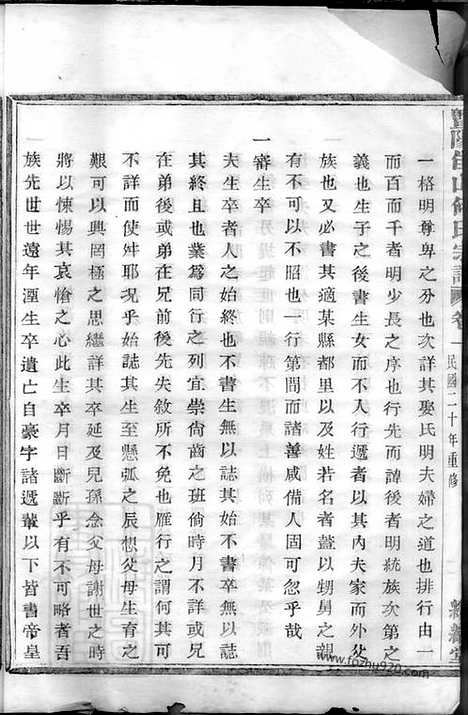 陽
山
氏宗譜
卷一
民國二十年重修
堂
一格明尊卑之分也次詳其娶氏明夫婦之道也排行由一
而百而千者明少長之序也行先而諱後者明統族次第之
義也生子之後書生女而不入行遞者以其內夫家而外父
族也又必書其適某縣都里以及姓若名者蓋以甥舅之親
有不可以不一行第間而諸善咸備人固可忽乎哉
一審生卒
夫生卒者人之始終也不書生無以誌其始不書卒無以誌
其終且也業爲同行之列宜崇尚齒之班倘時月不詳或兄
在弟後或弟在兄前後先失敘所不免也雁行之謂何其可
不詳而使舛耶況乎始誌其生之辰想父母生育之
艱可以興罔極之思繼詳其卒延及兒孫念父母謝世之時
將以悚惕其哀愴之心此生卒月日斷斷乎有不可略者吾
族先世世遠年湮生卒遺亡自豪字諸遞輩以下皆書帝皇
www.fozhu920.com